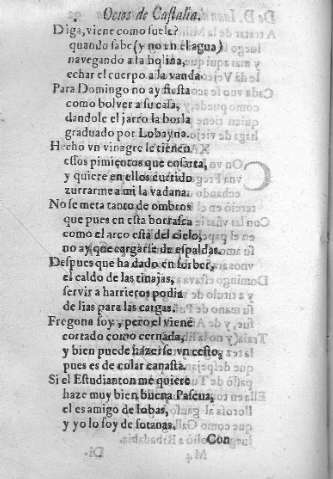 Ocios de Castalia.
Diga, viene como suele?
quando sabe (y no en el agua)
navegando a la bolina,
echar el cuerpo a la vanda.
Para Domingo no ay fiesta
como bolver a su casa,
dandole el jarro la borla
graduado por Lobayna.
Hecho vn vinagre le tienen
essos pimientos que ensarta,
y quiere en ellos curtido
zurrarme a mi la vadana.
No se meta tanto de ombros
que pues en esta borrasca
como el arco està del cielo,
no ay que cargarse de espaldas.
Despues que ha dado en sorber,
el caldo de las tinajas,
servir a harrieros podia
de lias para las cargas.
Fregona soy, pero el viene
cortado como cernada,
y bien puede hazerse vn cesto,
pues es de colar canasta.
Si el Estudianton me quiere
haze muy bien, buena Pascua,
el es amigo de lobas,
y yo lo soy de sotanas.
Con